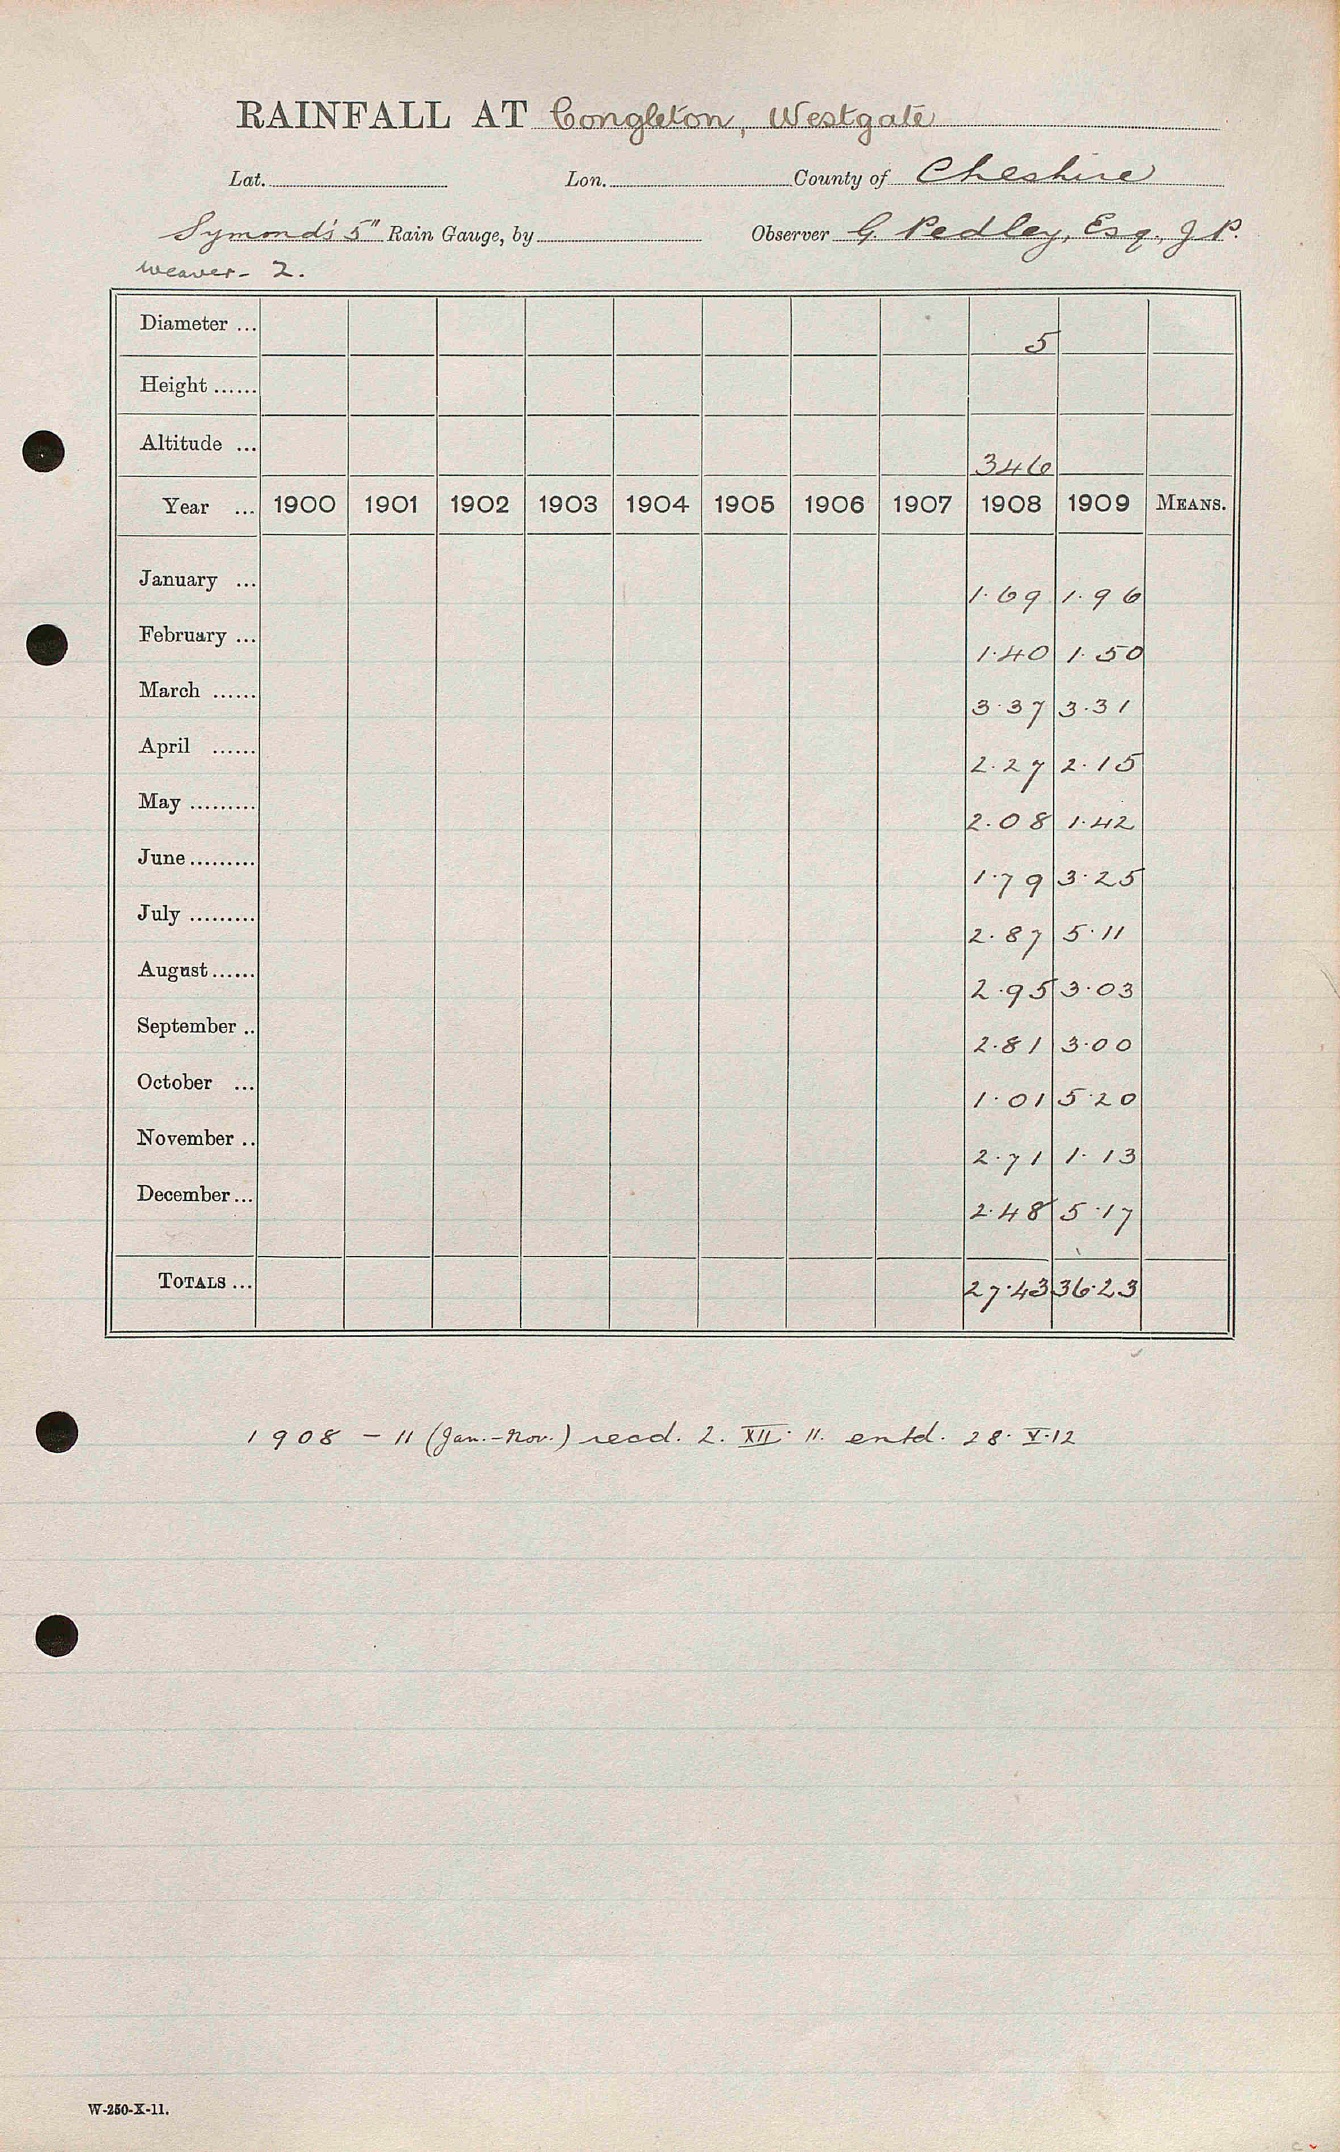 RAINFALL AT Congleton, Westgate
Lat. Lon. County of Cheshire
Symond's 5" Rain Gauge, by Observer G. Pedley, Esq., J.P.
Weaver - 2.
Diameter ... 5
Height ......
Altitude ... 346
Year ... 1900 1901 1902 1903 1904 1905 1906 1907 1908 1909 MEANS.
January ... 1.69 1.96
February ... 1.40 1.50
March ...... 3.37 3.31
April ...... 2.27 2.15
May ......... 2.08 1.42
June ......... 1.79 3.25
July ......... 2.87 5.11
August ...... 2.95 3.03
September .. 2.81 3.00
October ... 1.01 5.20
November .. 2.71 1.13
December ... 2.48 5.17
TOTALS ... 27.43 36.23
1908 - 11 (Jan.-Nov.) recd. 2. XII. 11. entd. 28. V. 12
W-250-X-11.